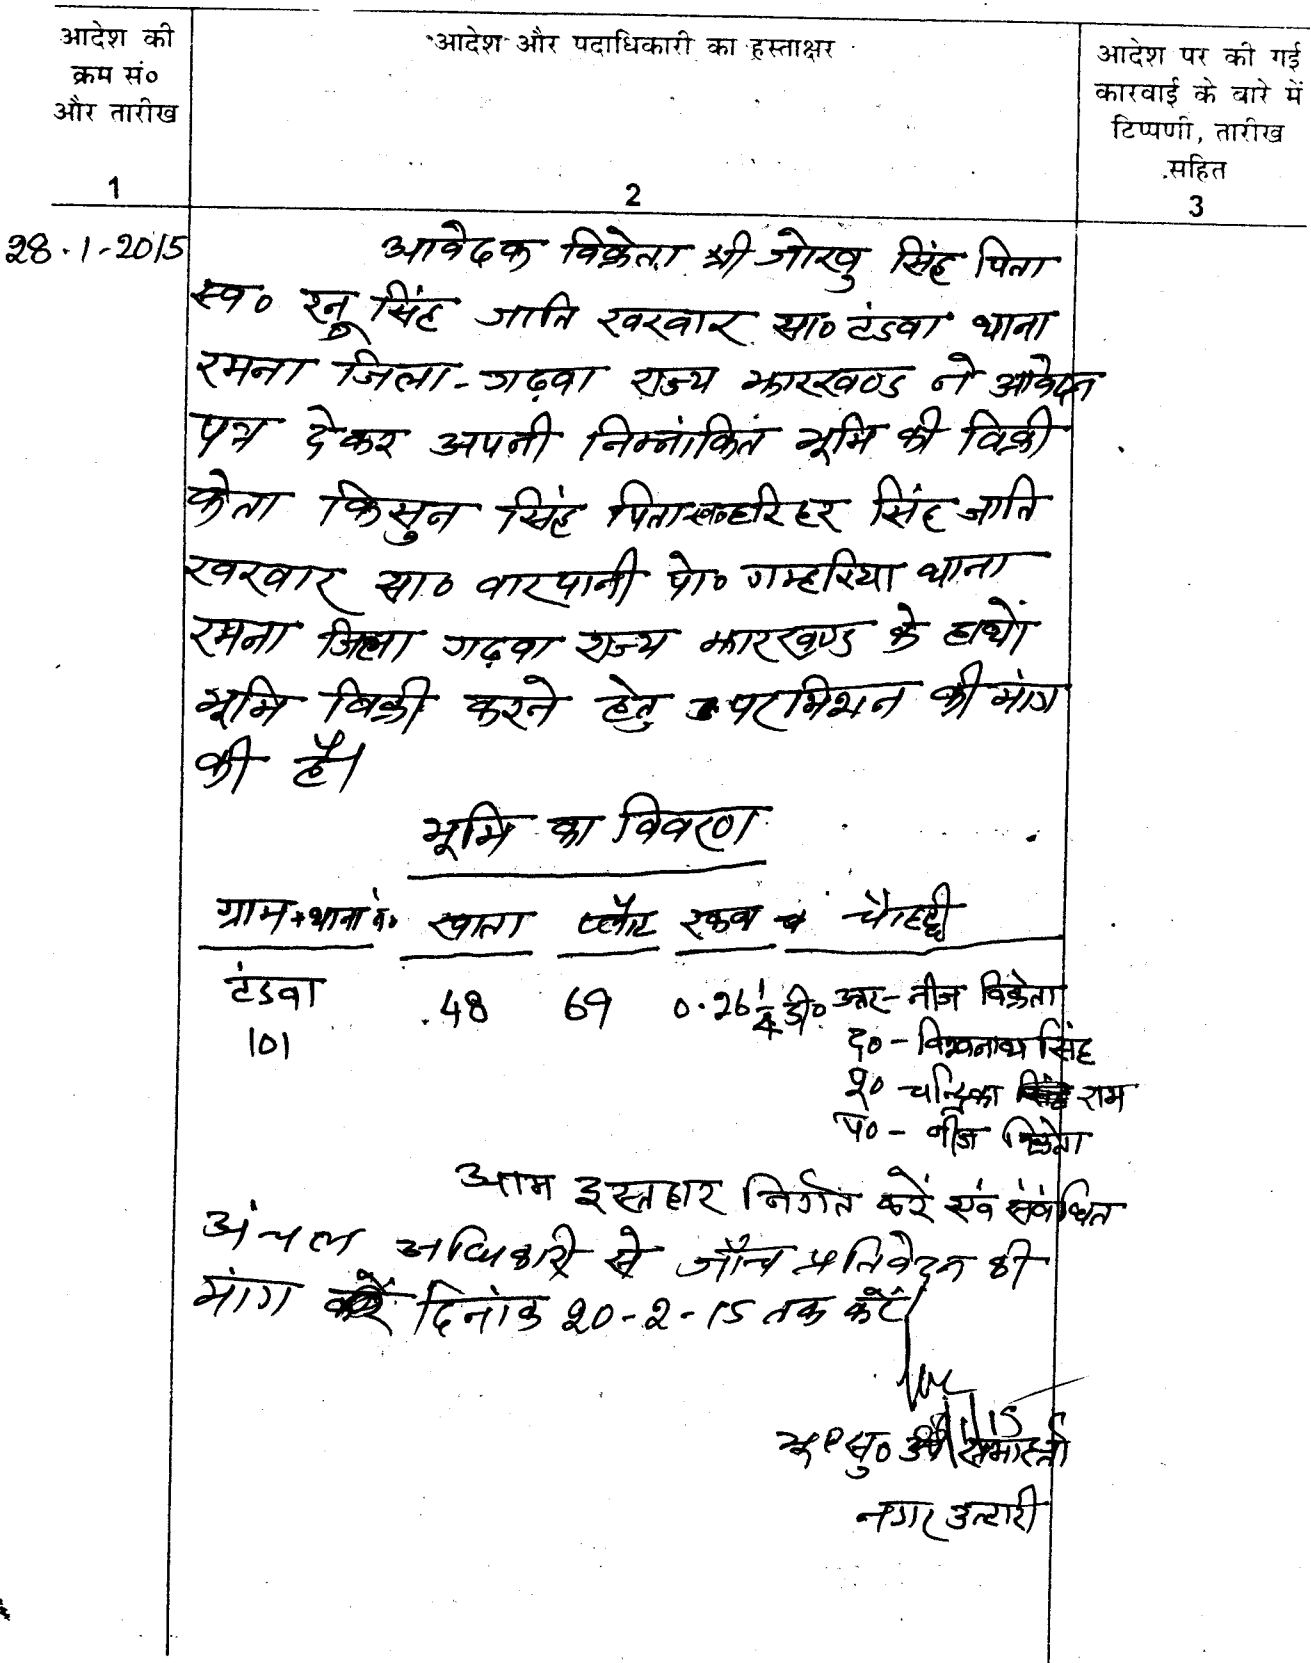 आदेश की
क्रम सं०
और तारीख
आदेश और पदाधिकारी का हस्ताक्षर
आदेश पर की गई
कारवाई के बारे में
टिप्पणी, तारीख
सहित
1
2
3
28.1-2015
आवेदक विक्रेता श्री जोखु सिंह पिता
स्व० रनु सिंह जाति खरवार सा० टंडवा थाना
रमना जिला-गढ़वा राज्य झारखण्ड ने आवेदन
पत्र देकर अपनी निम्नांकित भूमि की विक्री
केता किसुन सिंह पिता स्व० हरिहर सिंह जाति
खरवार सा० वारपानी पो० गम्हरिया थाना
रमना जिला गढ़वा राज्य झारखण्ड के हाथों
भूमि बिक्री करने हेतु परमिशन की मांग
की है।
भूमि का विवरण
ग्राम + थाना नं० खाता प्लौट रकवा चौहद्दी
टंडवा 48 69 0.26 1/4 डी० उत्तर- नीज विक्रेता
101
द० - विश्वनाथ सिंह
पू० चन्द्रिका राम
प० - नीज विक्रेता
आम इस्तहार निर्गत करें एवं संबंधित
अंचल अधिकारी से जाँच प्रतिवेदन की
मांग दिनांक 20-2-15 तक करें।
भू० सु० उप समाहर्ता
नगर उंटारी